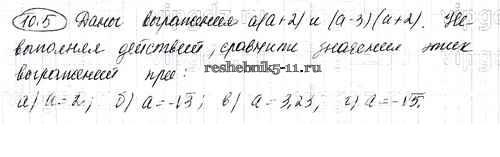 10.5 Даны выражения a(a+2) и (a-3)(a+2). Не
выполняя действий, сравнить значения этих
выражений при:
reshebnik5-11.ru
а) a=2; б) a=-13; в) a=3,23; г) a=-15.